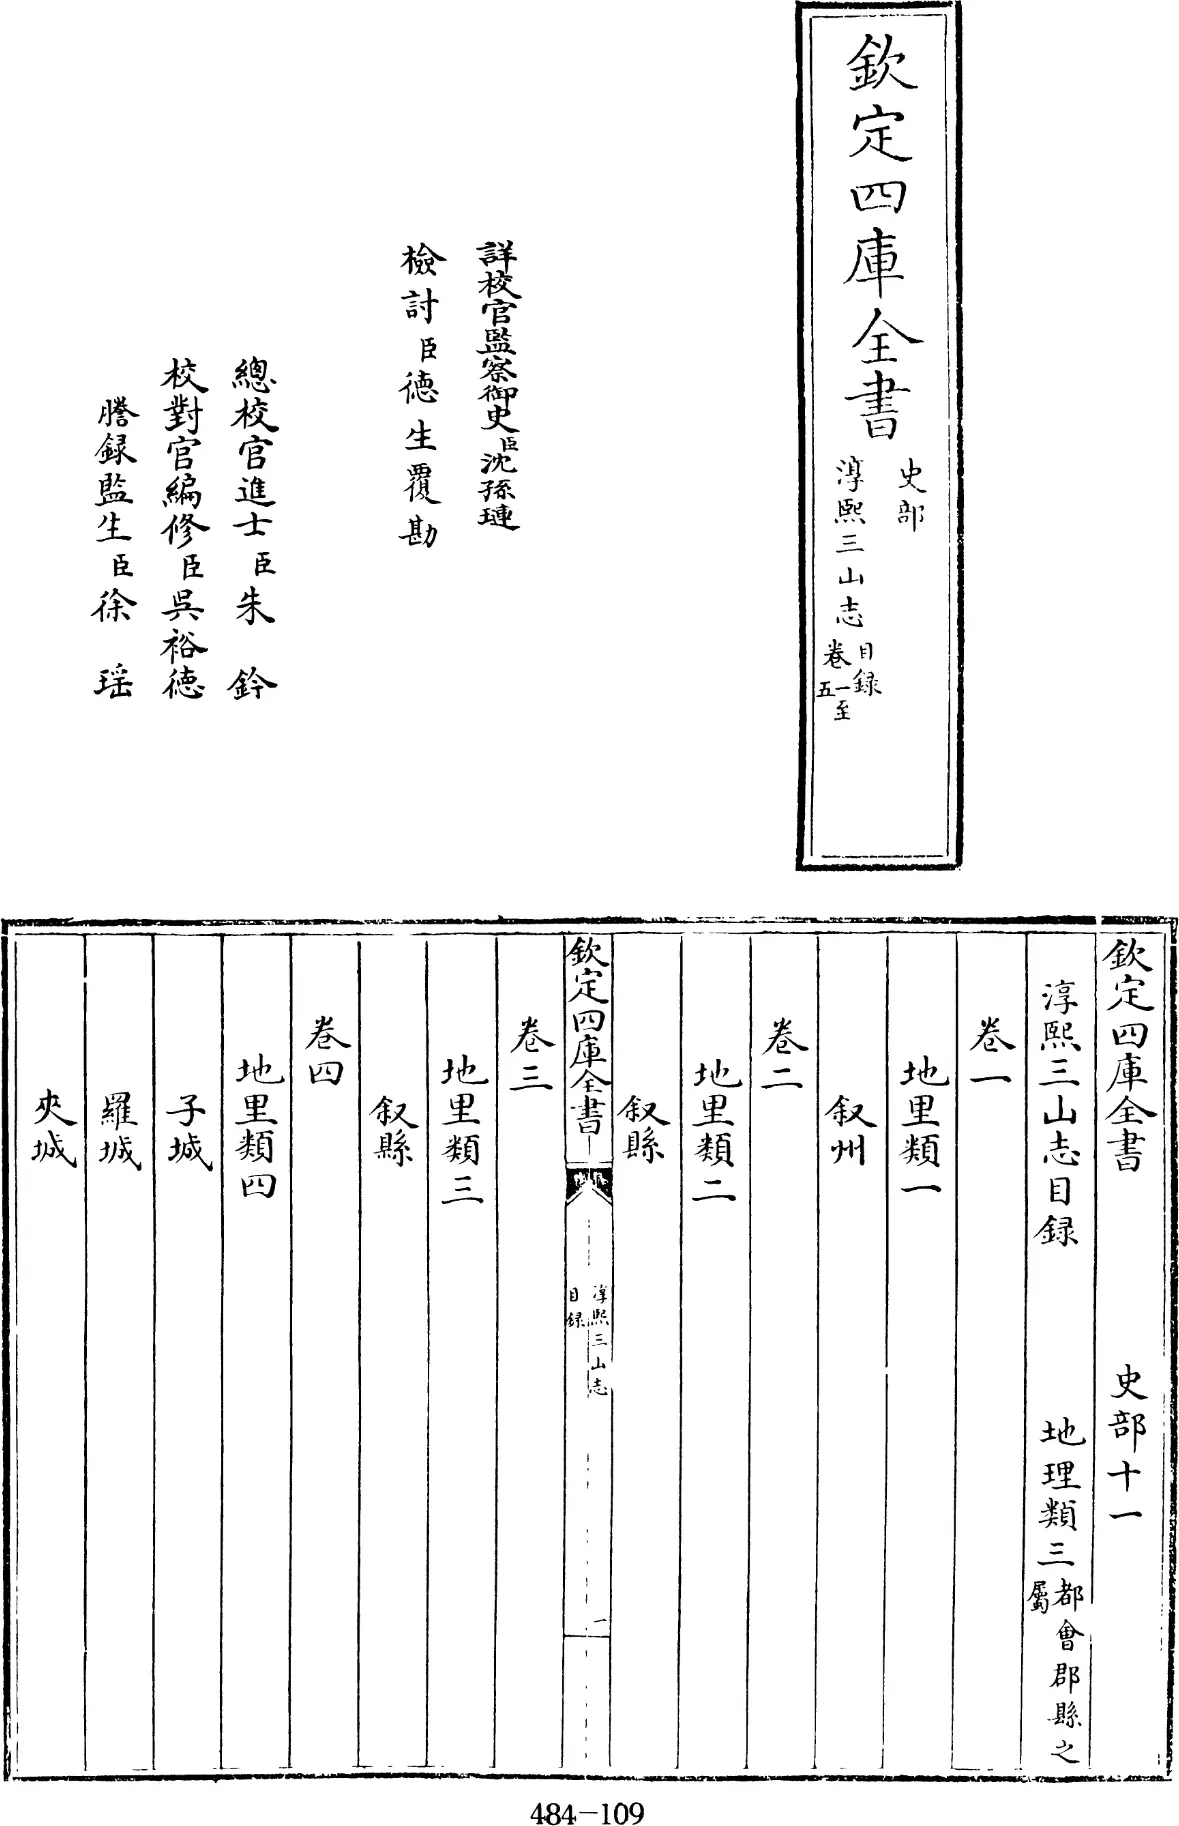 欽定四庫全書
史部
淳熙三山志
目録
卷一至五
詳校官監察御史臣沈孫璉
檢討臣德生覆勘
總校官進士臣朱鈐
校對官編修臣吳裕德
謄録監生臣徐瑶
欽定四庫全書 史部十一
淳熙三山志目録 地理類三都會郡縣之屬
卷一
地里類一
叙州
卷二
地里類二
叙縣
欽定四庫全書
淳熙三山志
目録
一
卷三
地里類三
叙縣
卷四
地里類四
子城
羅城
夾城
484-109